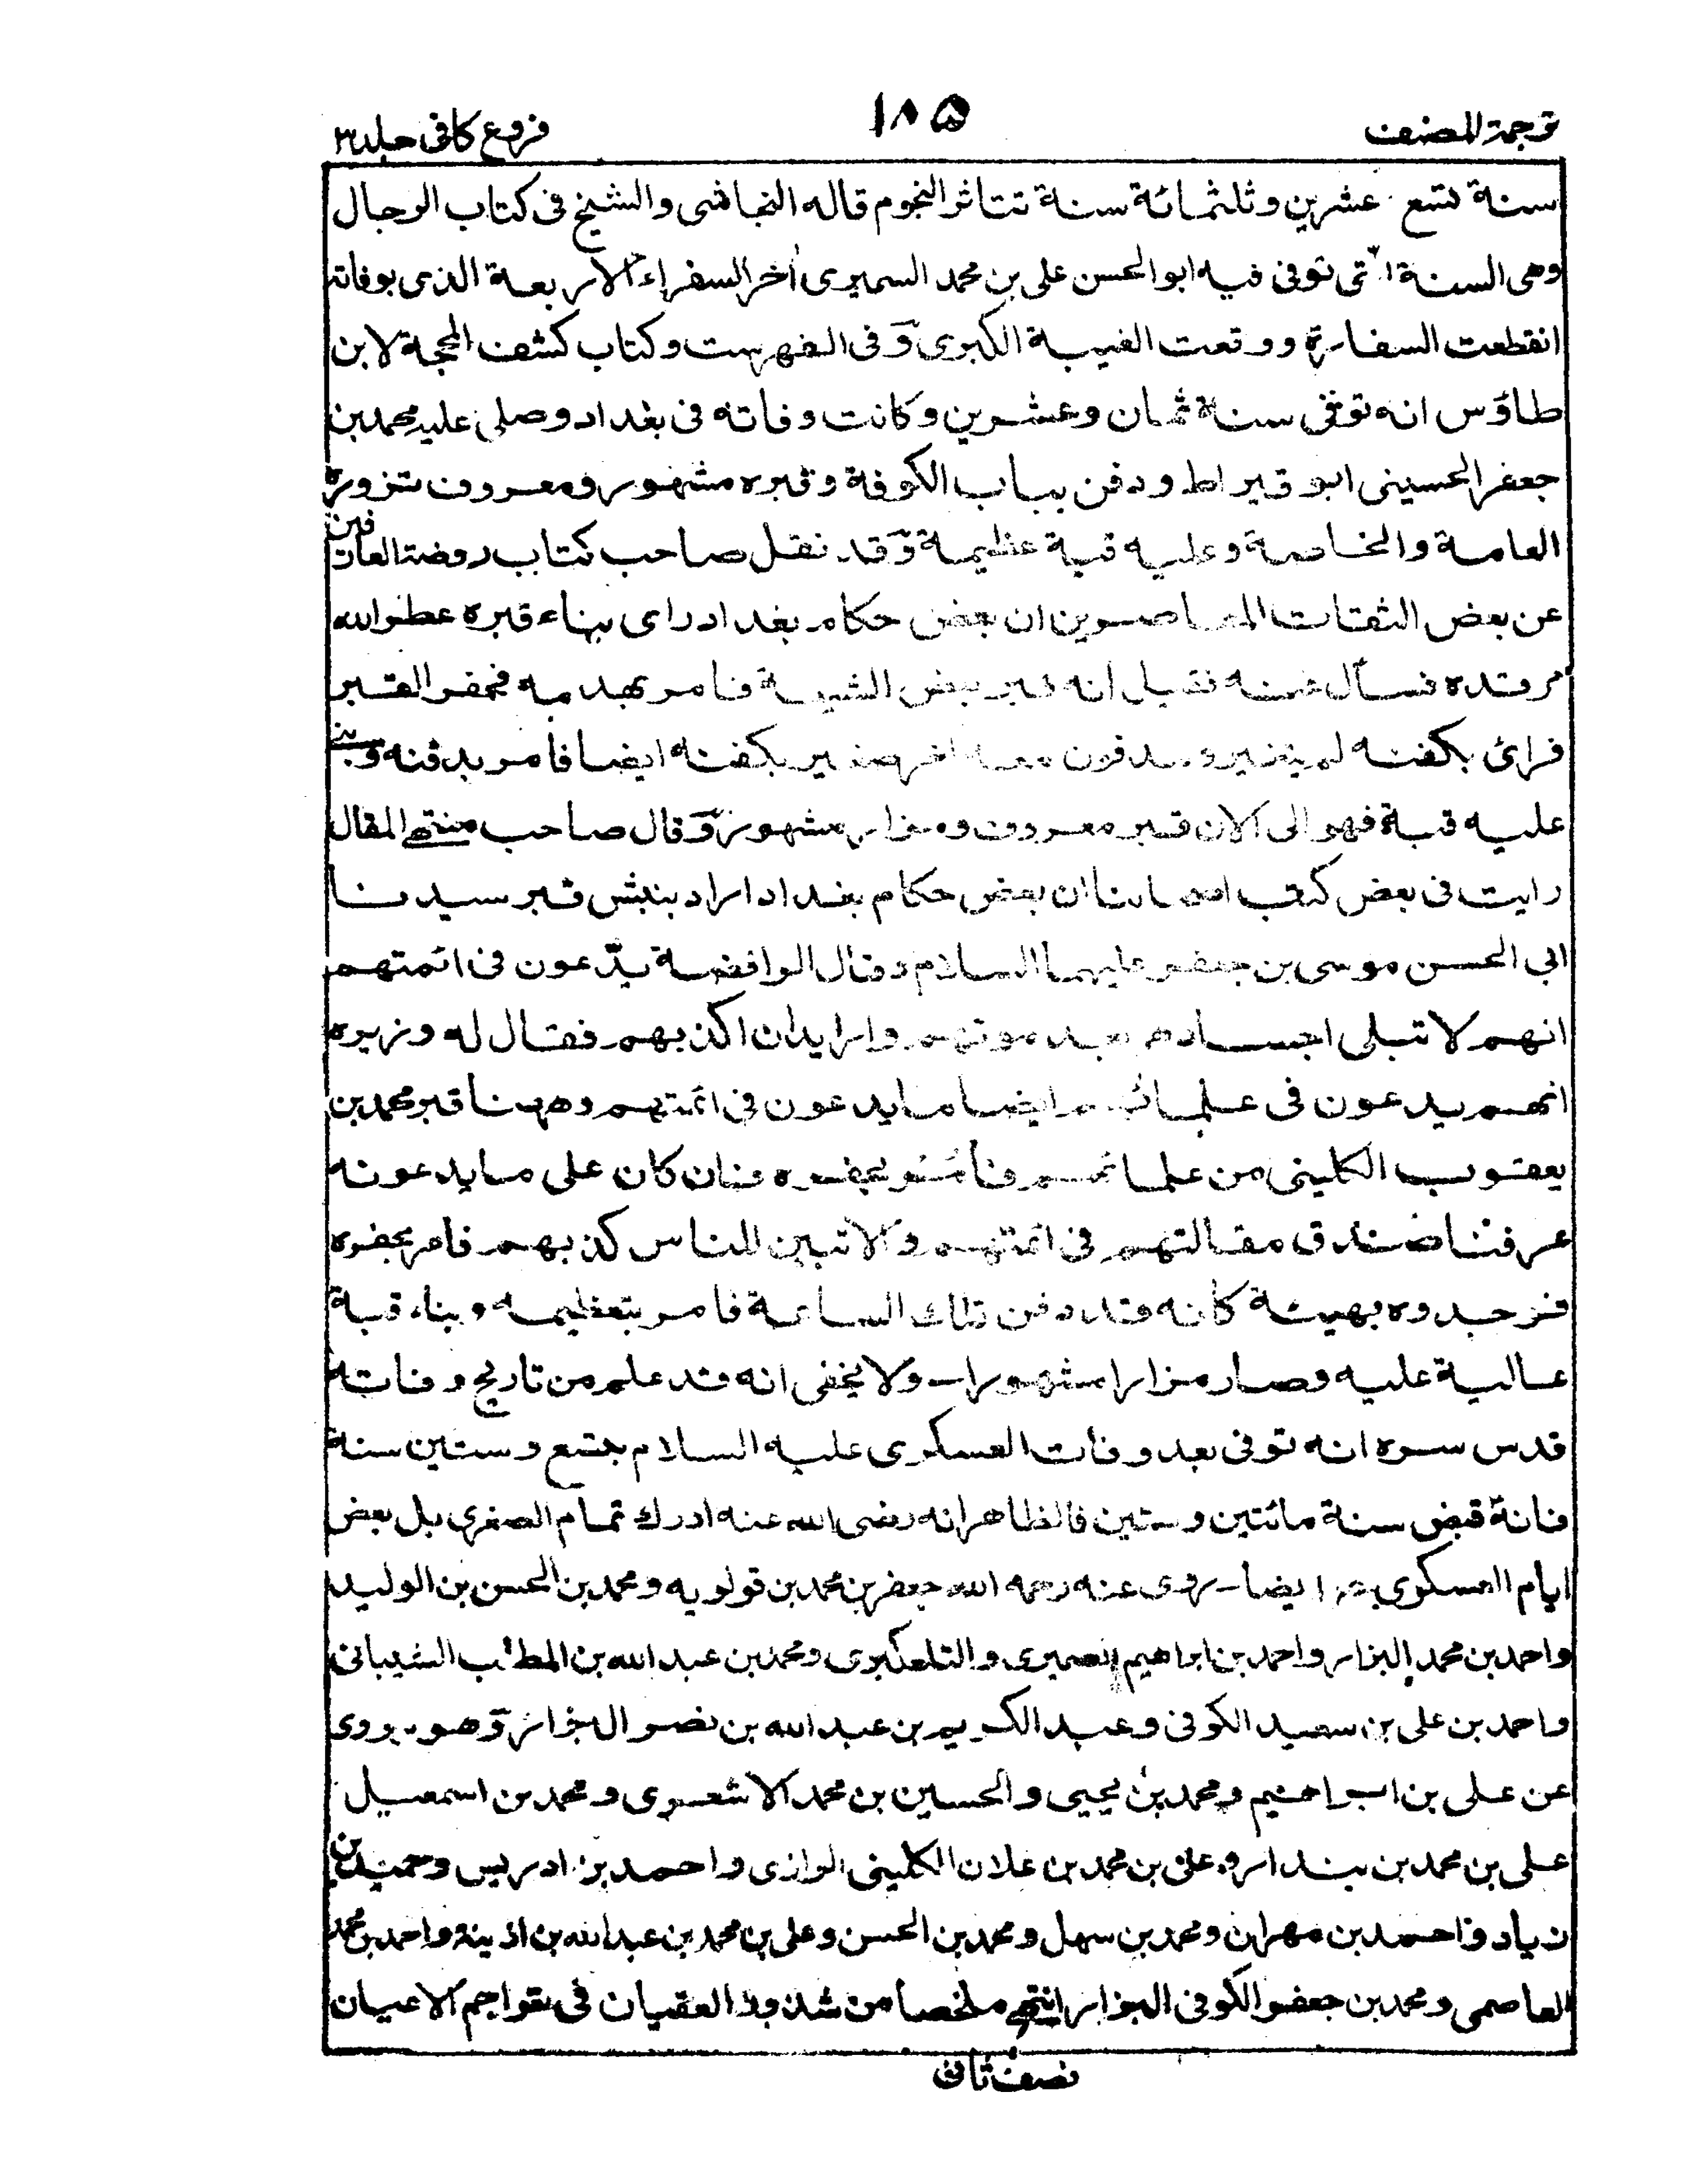 ترجمة المصنف ١٨٥ فروع كافى جلد ٣
سنة تسع عشرين وثلثمائة سنة تتناثر النجوم قاله النجاشى والشيخ فى كتاب الرجال
وهى السنة التى توفى فيه ابو الحسن على بن محمد السميرى أخر السفراء الاربعة الذى بوفاته
انقطعت السفارة ووقعت الغيبة الكبرى وفى الفهرست وكتاب كشف المحجة لابن
طاؤس انه توفى سنة ثمان وعشرين وكانت وفاته فى بغداد وصلى عليه محمد بن
جعفر الحسينى ابو قيراط ودفن بباب الكوفة وقبره مشهور ومعروف تزوره
العامة والخاصة وعليه قبة عظيمة وقد نقل صاحب كتاب روضة العارفين
عن بعض الثقات المعاصرين ان بعض حكام بغداد راى بناء قبره عطر الله
مرقده فسأل عنه فقيل انه قبر بعض الشيعة فامر بهدمه فحفر القبر
فرائ بكفنه لم يتغير ومدفون معه اخر صغير بكفنه ايضا فامر بدفنه وبنى
عليه قبة فهو الى الان قبر معروف ومزار مشهور وقال صاحب منتهى المقال
رايت فى بعض كتب اصحابنا ان بعض حكام بغداد اراد بنبش قبر سيدنا
ابى الحسن موسى بن جعفر عليهما السلام وقال الرافضة يدّعون فى ائمتهم
انهم لا تبلى اجسادهم بعد موتهم واريد ان اكذبهم فقال له وزيره
انهم يدعون فى علمائهم ايضا ما يدعون فى ائمتهم وههنا قبر محمد بن
يعقوب الكلينى من علمائهم فأمر بحفره فان كان على ما يدعونه
عرفنا صدق مقالتهم فى ائمتهم والا تبين للناس كذبهم فامر بحفره
فوجدوه بهيئة كأنه قد دفن تلك الساعة فامر بتعظيمه وبناء قبة
عالية عليه وصار مزارا مشهورا ولا يخفى انه قد علم من تاريخ وفاته
قدس سره انه توفى بعد وفات العسكرى عليه السلام بتسع وستين سنة
فانه قبض سنة مائتين وستين فالظاهر انه رضى الله عنه ادرك تمام الصغرى بل بعض
ايام العسكرى ايضا روى عنه رحمه الله جعفر بن محمد بن قولويه ومحمد بن الحسن بن الوليد
واحمد بن محمد البزار واحمد بن ابراهيم الصميرى والتلعكبرى ومحمد بن عبد الله بن المطلب الشيبانى
واحمد بن على بن سعيد الكوفى وعبد الكريم بن عبد الله بن نصر البزاز وهو يروى
عن على بن ابراهيم ومحمد بن يحيى والحسين بن محمد الاشعرى ومحمد بن اسمعيل
على بن محمد بن بندار وعلى بن محمد بن علان الكلينى الرازى واحمد بن ادريس وحميد بن
زياد واحمد بن مهران ومحمد بن سهل ومحمد بن الحسن وعلى بن محمد بن عبد الله بن اذينة واحمد بن محمد
العاصمى ومحمد بن جعفر الكوفى البزاز انتهى ملخصا من شذوذ العقيان فى تراجم الاعيان
نصف ثانى